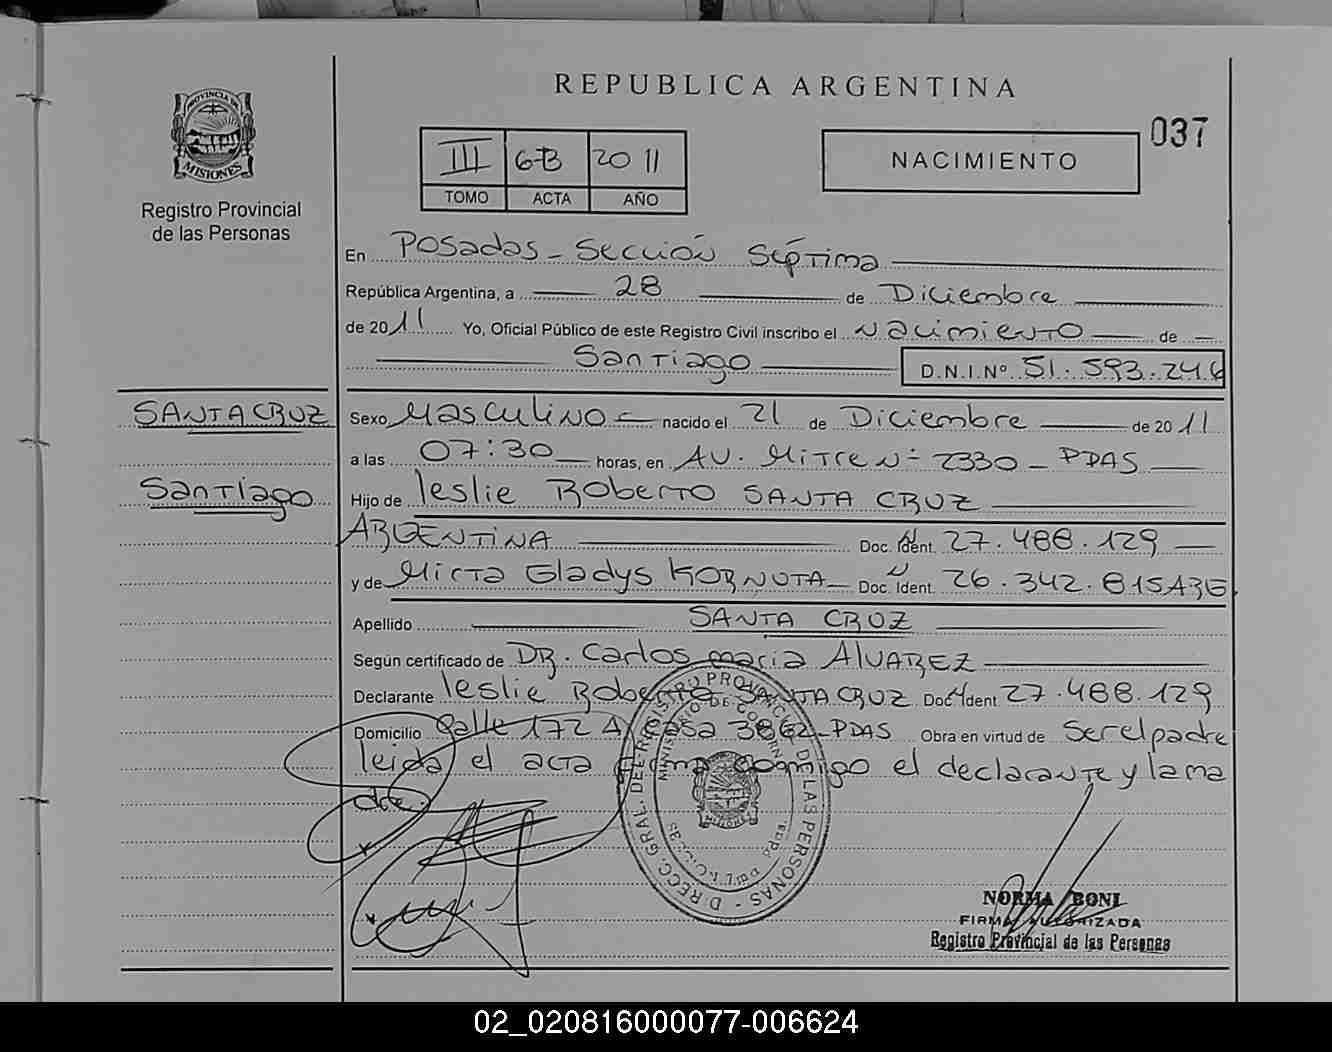 REPUBLICA ARGENTINA
PROVINCIA DE
MISIONES
Registro Provincial
de las Personas
III 6-B 2011
TOMO ACTA AÑO
NACIMIENTO
037
En Posadas - Sección Séptima
República Argentina, a 28 de Diciembre
de 2011 Yo, Oficial Público de este Registro Civil inscribo el Nacimiento de
Santiago D.N.I.Nº 51.593.246
SANTA CRUZ
Santiago
Sexo Masculino nacido el 21 de Diciembre de 2011
a las 07:30 horas, en AV. Mitre Nº 2330 - PDAS
Hijo de leslie Roberto SANTA CRUZ
ARGENTINA Doc. Ident. 27.488.129
y de Mirta Gladys KORNUTA Doc. Ident. 26.342.815 ARG
Apellido SANTA CRUZ
Según certificado de DR. Carlos maria ALVAREZ
Declarante leslie Roberto SANTA CRUZ Doc. Ident. 27.488.129
Domicilio Calle 172 A, Casa 3862 - PDAS Obra en virtud de Ser el padre
leida el acta firma conmigo el declarante y la ma
dre.
DIRECC. GRAL. DEL REGISTRO PROVINCIAL DE LAS PERSONAS
MINISTERIO DE GOBIERNO
NORMA BONI
FIRMA AUTORIZADA
Registro Provincial de las Personas
02_020816000077-006624